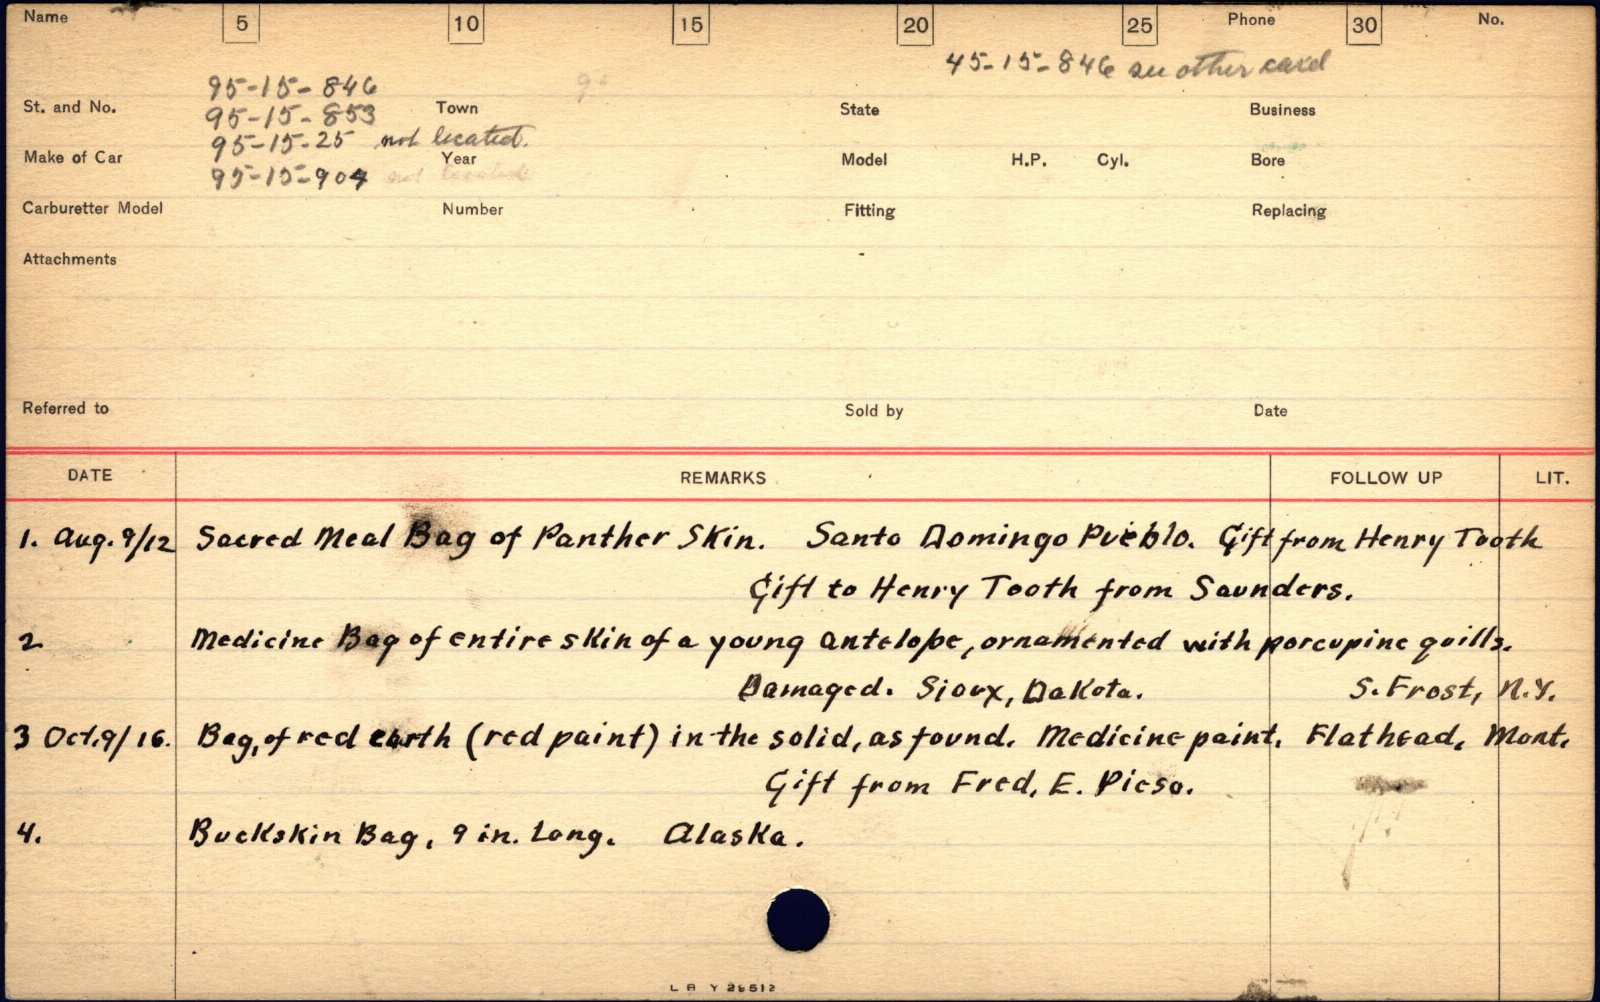 Name 5 10 15 20 25 Phone 30 No.
45-15-846 see other card
95-15-846
St. and No. 95-15-853 Town State Business
95-15-25 not located.
Make of Car Year Model H.P. Cyl. Bore
95-15-904 not located
Carburetter Model Number Fitting Replacing
Attachments
Referred to Sold by Date
DATE REMARKS FOLLOW UP LIT.
1. Aug. 9/12 Sacred Meal Bag of Panther Skin. Santo Domingo Pueblo. Gift from Henry Tooth
Gift to Henry Tooth from Saunders.
2 Medicine Bag of entire skin of a young antelope, ornamented with porcupine quills.
Damaged. Sioux, Dakota. S. Frost, N.Y.
3 Oct. 9/16. Bag, of red earth (red paint) in the solid, as found. Medicine paint. Flathead, Mont.
Gift from Fred, E. Pieso.
4. Buckskin Bag, 9 in. Long. Alaska.
L B Y 26512